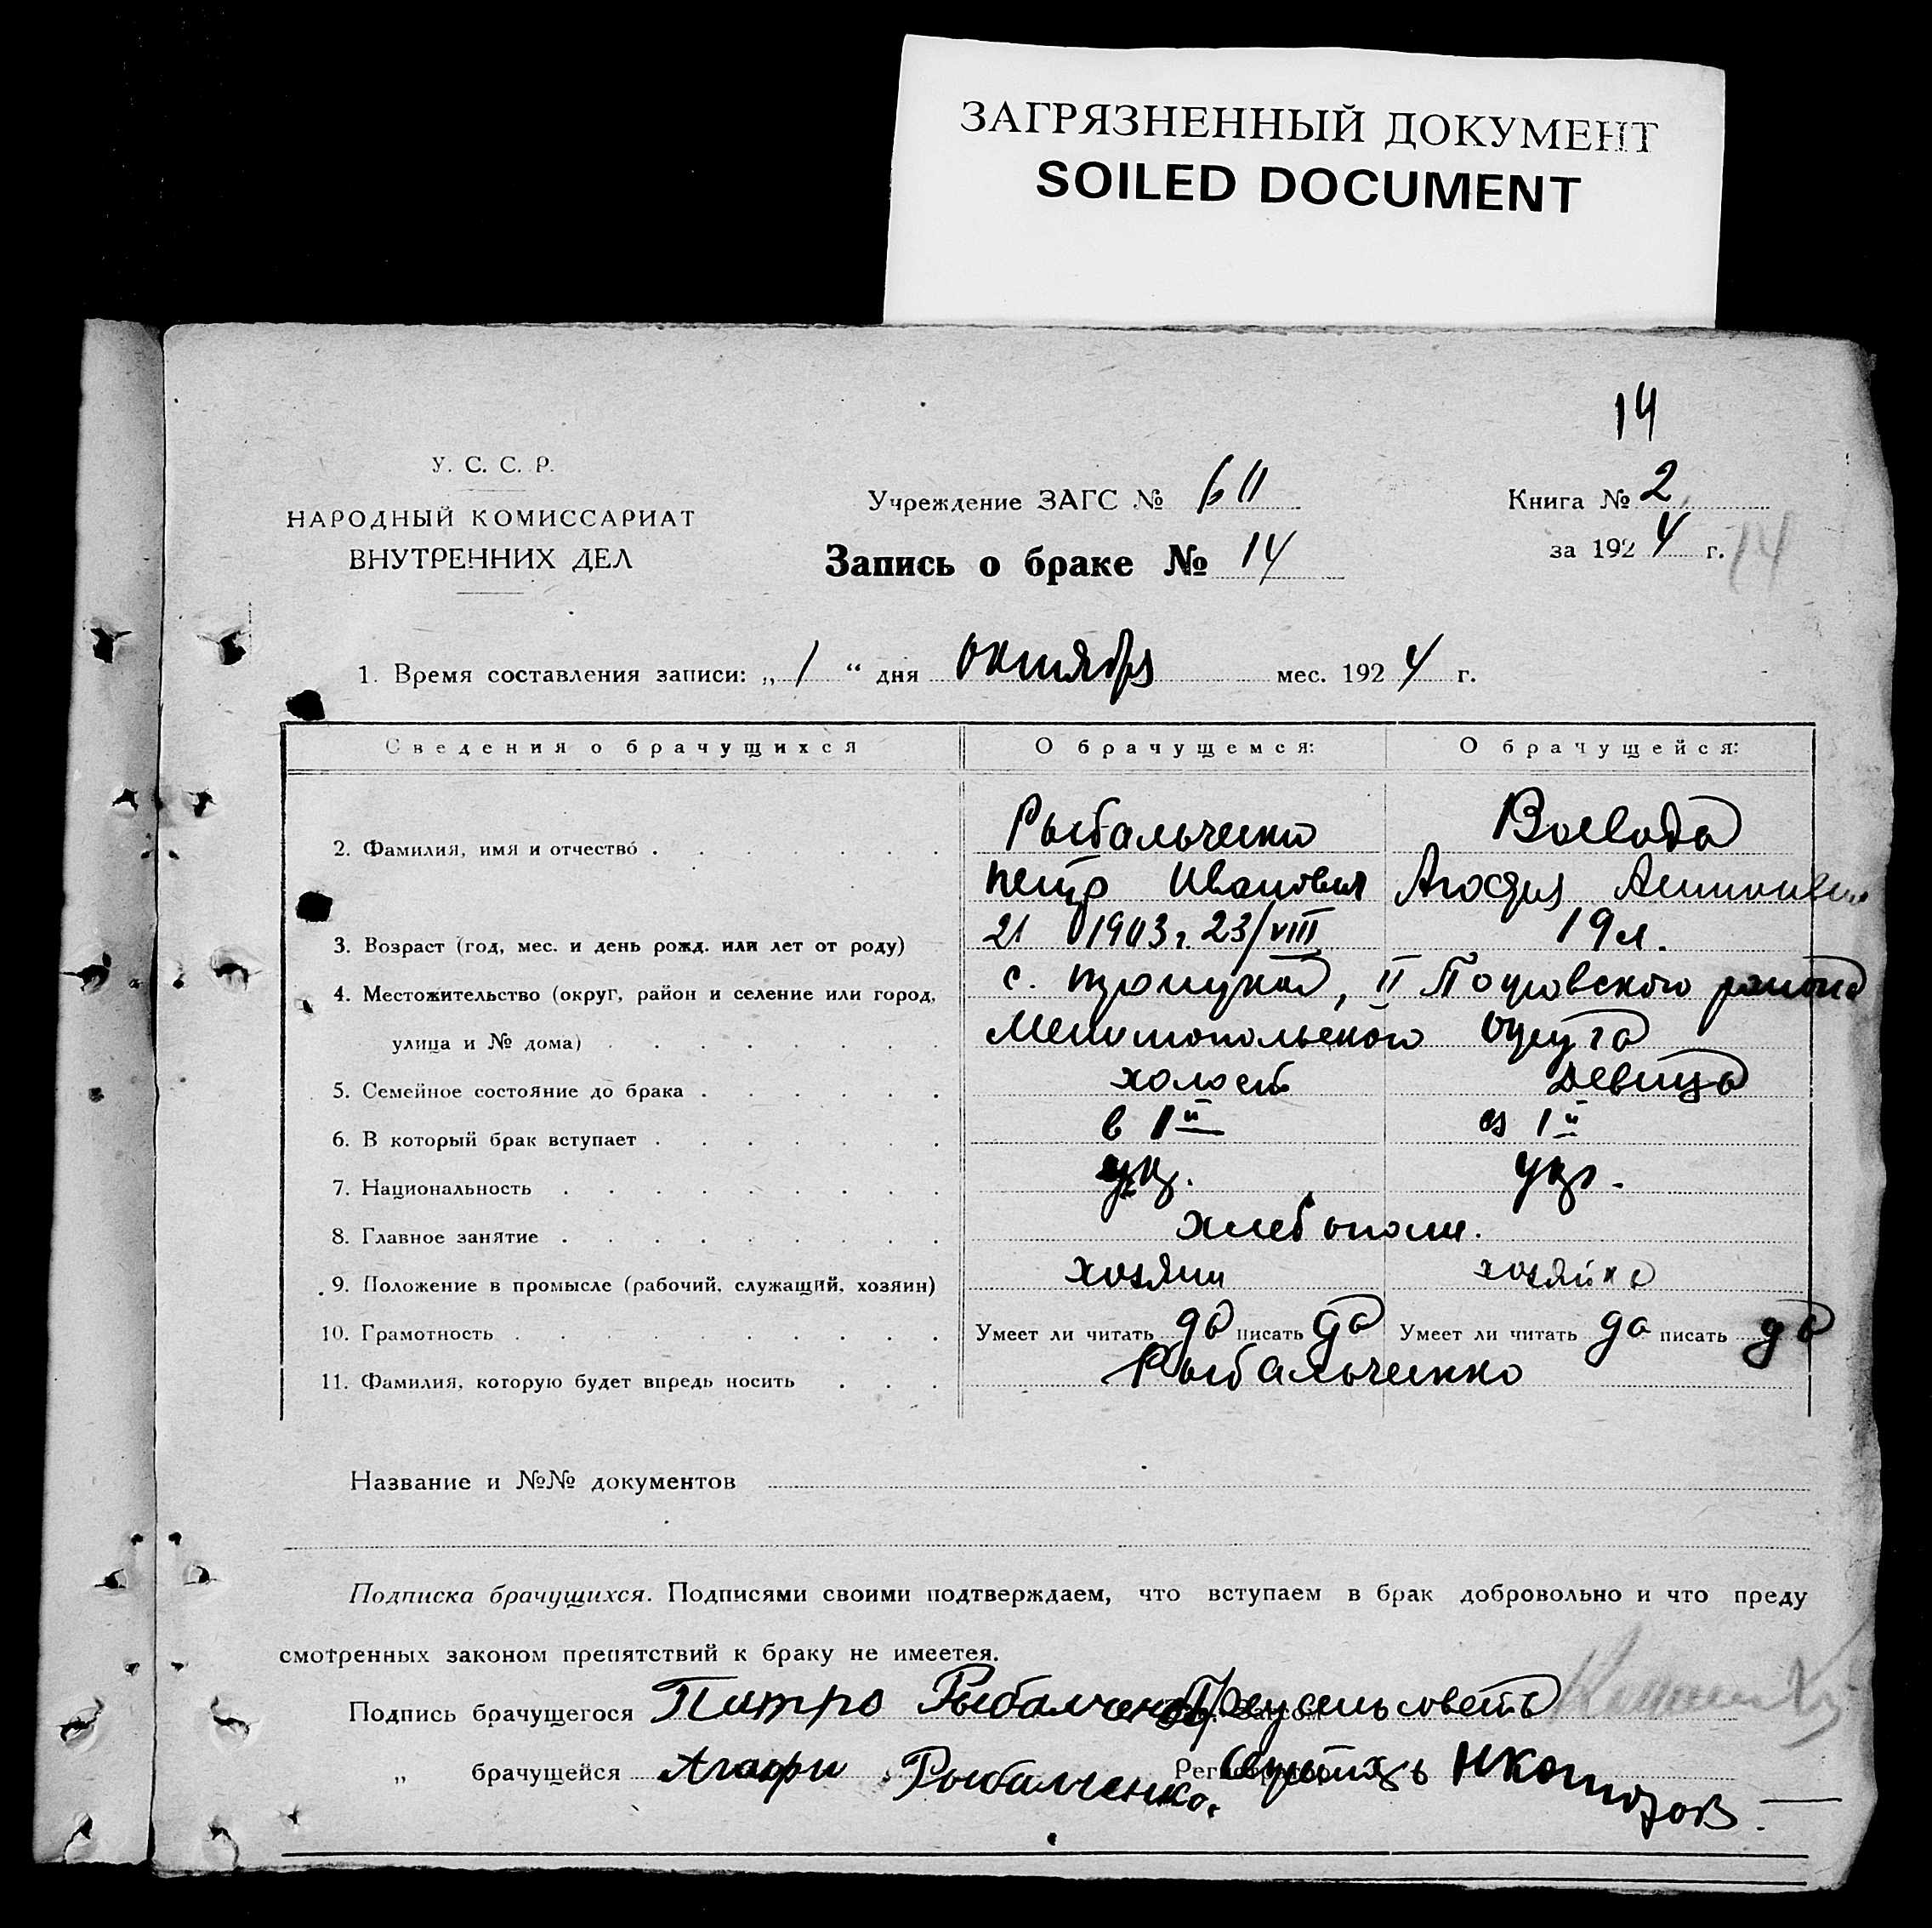 ЗАГРЯЗНЕННЫЙ ДОКУМЕНТ
SOILED DOCUMENT
14
У. С. С. Р.
НАРОДНЫЙ КОМИССАРИАТ
ВНУТРЕННИХ ДЕЛ
Учреждение ЗАГС №
Запись о браке № 14
Книга № 2
за 1924 г. 14
1. Время составления записи: „1“ дня октября мес. 1924 г.
Сведения о брачущихся О брачущемся: О брачущейся:
Рыбальченко Воевода
2. Фамилия, имя и отчество
Петр Иванович Агафия
3. Возраст (год, мес. и день рожд. или лет от роду) 21 1903 г. 23/VIII 19 л.
4. Местожительство (округ, район и селение или город, с. , II Покровского района
улица и № дома) Мелитопольского округа
5. Семейное состояние до брака холост девица
6. В который брак вступает в 1й в 1й
7. Национальность укр. укр.
8. Главное занятие хлебопаш.
9. Положение в промысле (рабочий, служащий, хозяин) хозяин хозяйка
10. Грамотность Умеет ли читать да писать да Умеет ли читать да писать да
11. Фамилия, которую будет впредь носить Рыбальченко
Название и №№ документов
Подписка брачущихся. Подписями своими подтверждаем, что вступаем в брак добровольно и что преду
смотренных законом препятствий к браку не имеется.
Подпись брачущегося Питро Рыбалченко
„ брачущейся Агафи Рыбалченко.